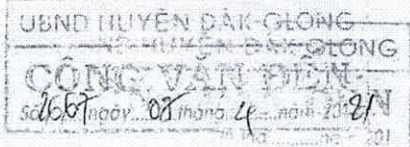 UBND HUYỆN ĐĂK GLONG
HUYỆN ĐĂK GLONG
CÔNG VĂN ĐẾN
Số 2667 ngày 08 tháng 4 năm 2021
201